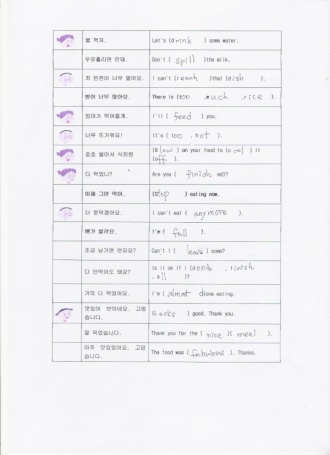 물 먹자.
Let's (drink ) some water.
우유흘리면 안돼.
Don't ( spill )the milk.
저 반찬이 너무 멀어요.
I can't (reach )that (dish ).
밥이 너무 많아요.
There is (too much rice ).
엄마가 먹여줄게.
I'll ( feed ) you.
너무 뜨거워요!
It's (too hot ).
호호 불어서 식히렴
(Blow ) on your food to (cool ) it
(off ).
다 먹었니?
Are you ( finish ed)?
이제 그만 먹어.
(Stop ) eating now.
더 못먹겠어요.
I can't eat ( anymore ).
배가 불러요.
I'm ( full ).
조금 남기면 안되요?
Can't I ( leave ) some?
다 안먹어도 돼요?
Is it ok if I ( finish
all )?
거의 다 먹었어요.
I'm ( almost done eating.
맛있어 보이네요. 고맙
습니다.
(Looks ) good. Thank you.
잘 먹었습니다.
Thank you for the ( nice )( meal ).
아주 맛있었어요. 고맙
습니다.
The food was ( fabulous ). Thanks.